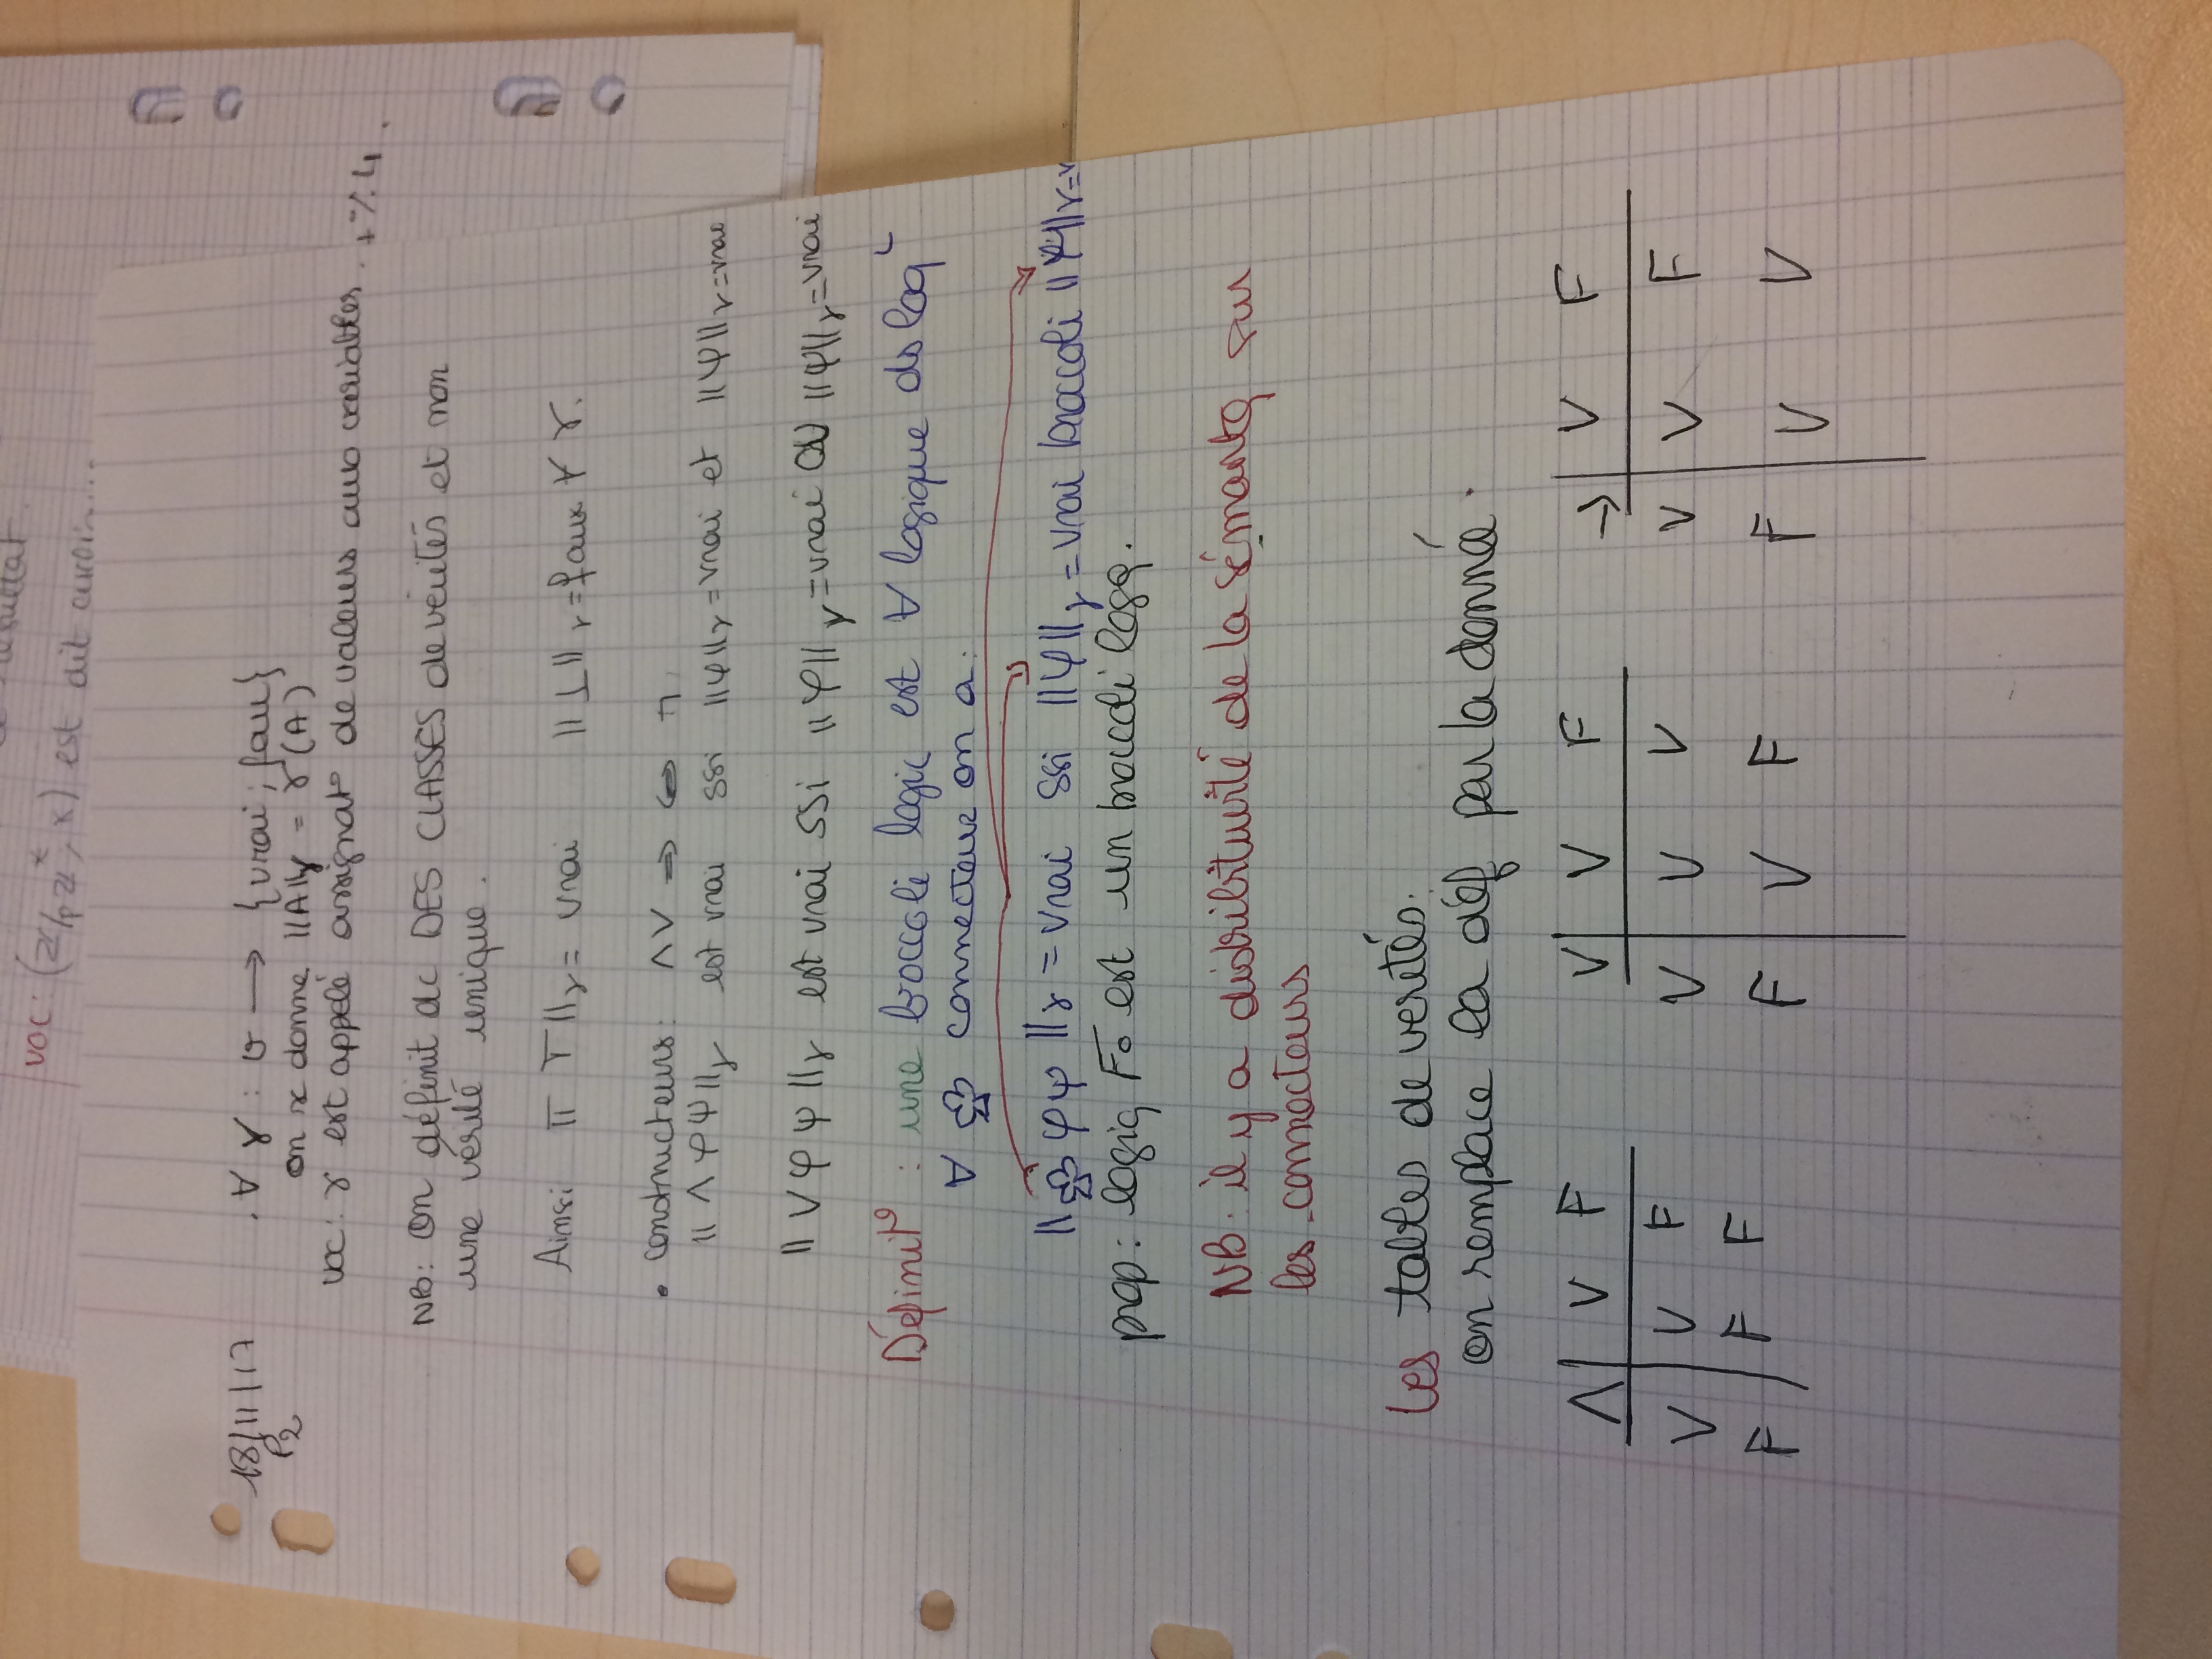 résultat.
voc: (ℤ/pℤ*, ×) est dit avoir....
18/11/17
P2
. ∀ γ : v → {vrai ; fau}
on x donne ||A||γ = γ(A)
voc: γ est appelé assignat° de valeurs aux variables. + % 4.
NB: On définit dc DES CLASSES de vérités et non
une vérité unique.
Ainsi || ⊤ ||γ = vrai || ⊥ ||γ = faux ∀ γ.
• constructeurs: ∧ ∨ ⇒ ⇔ ¬
|| ∧ φ ψ ||γ est vrai ssi ||φ||γ = vrai et ||ψ||γ = vrai
|| ∨ φ ψ ||γ est vrai ssi ||φ||γ = vrai OU ||ψ||γ = vrai
Définit° : une broccoli logic est ∀ logique ds laq^L
∀ 🥦 connecteur on a:
|| 🥦 φ ψ ||γ = vrai ssi ||φ||γ = vrai broccoli ||ψ||γ = v
prop: logiq F₀ est un broccoli logq.
NB: il y a distribituvité de la sémantq sur
les connecteurs
Les tables de verités:
on remplace la déf par la donnée.
∧ V F
V V F
F F F
V V F
V V V
F V F
→ V F
V V F
F V V